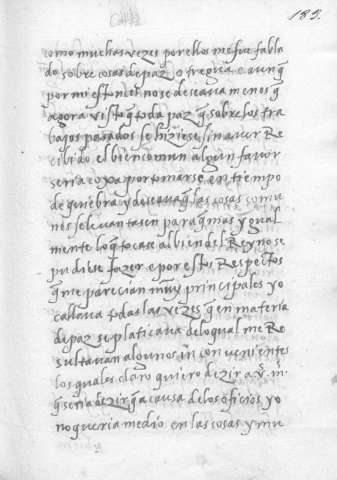 189.
como muchas vezes por ellos me fue fabla
do sobre cosas de paz o tregua e aunq̄
por mi estonces no se deseava menos q̄
agora visto q̄ toda paz q̄ sobre los tra
bajos pasados se hiziese sin aver Re
cibido el bien comun algun favor
seria coxa por tomarse en tiempo
de quiebra y deseava q̄ las cosas comu
nes se levantasen para q̄ mas ygual
mente lo q̄ tocase al bien del Reyno se
pudiese fazer e por estos Respectos
q̄ me parecian muy principales yo
callava todas las vezes q̄ en materia
de paz se platicava de lo qual me Re
sultavan algunos inconvenientes
los quales claro quiero dezir a v. m.
q̄ seria dezir q̄ a causa de los oficios yo
no queria medio en las cosas y mu